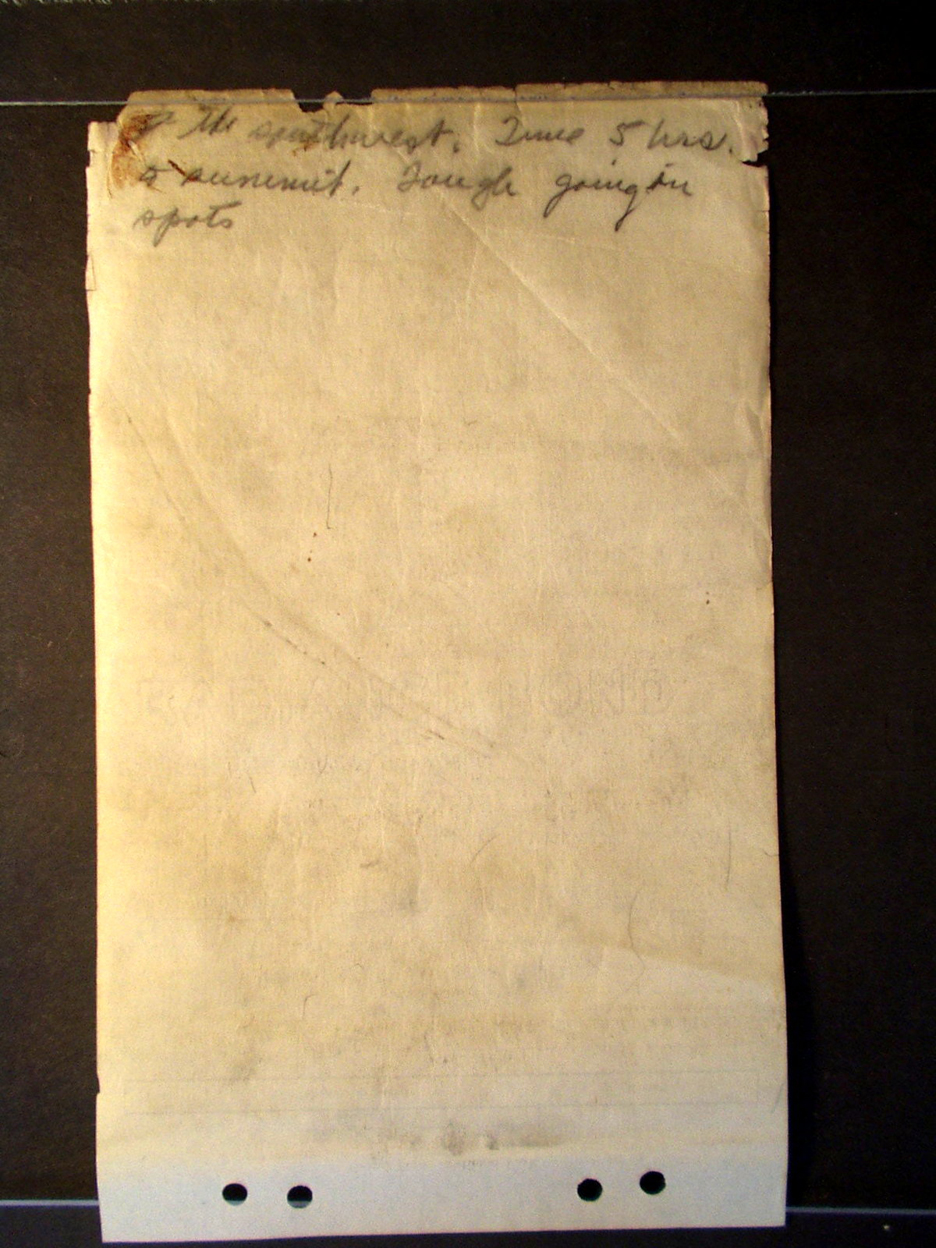 the southwest. Time 5 hrs.
to summit. Tough going in
spots